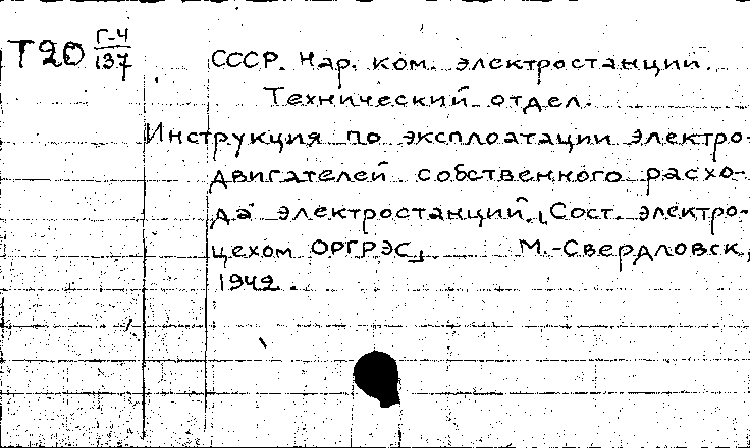 Т20 Г-4/137
СССР. Нар. ком. электростанций.
Технический отдел.
Инструкция по эксплоатации электро-
двигателей собственного расхо-
да электростанций. [Сост. электро-
цехом ОРГРЭС]. М.-Свердловск,
1942.